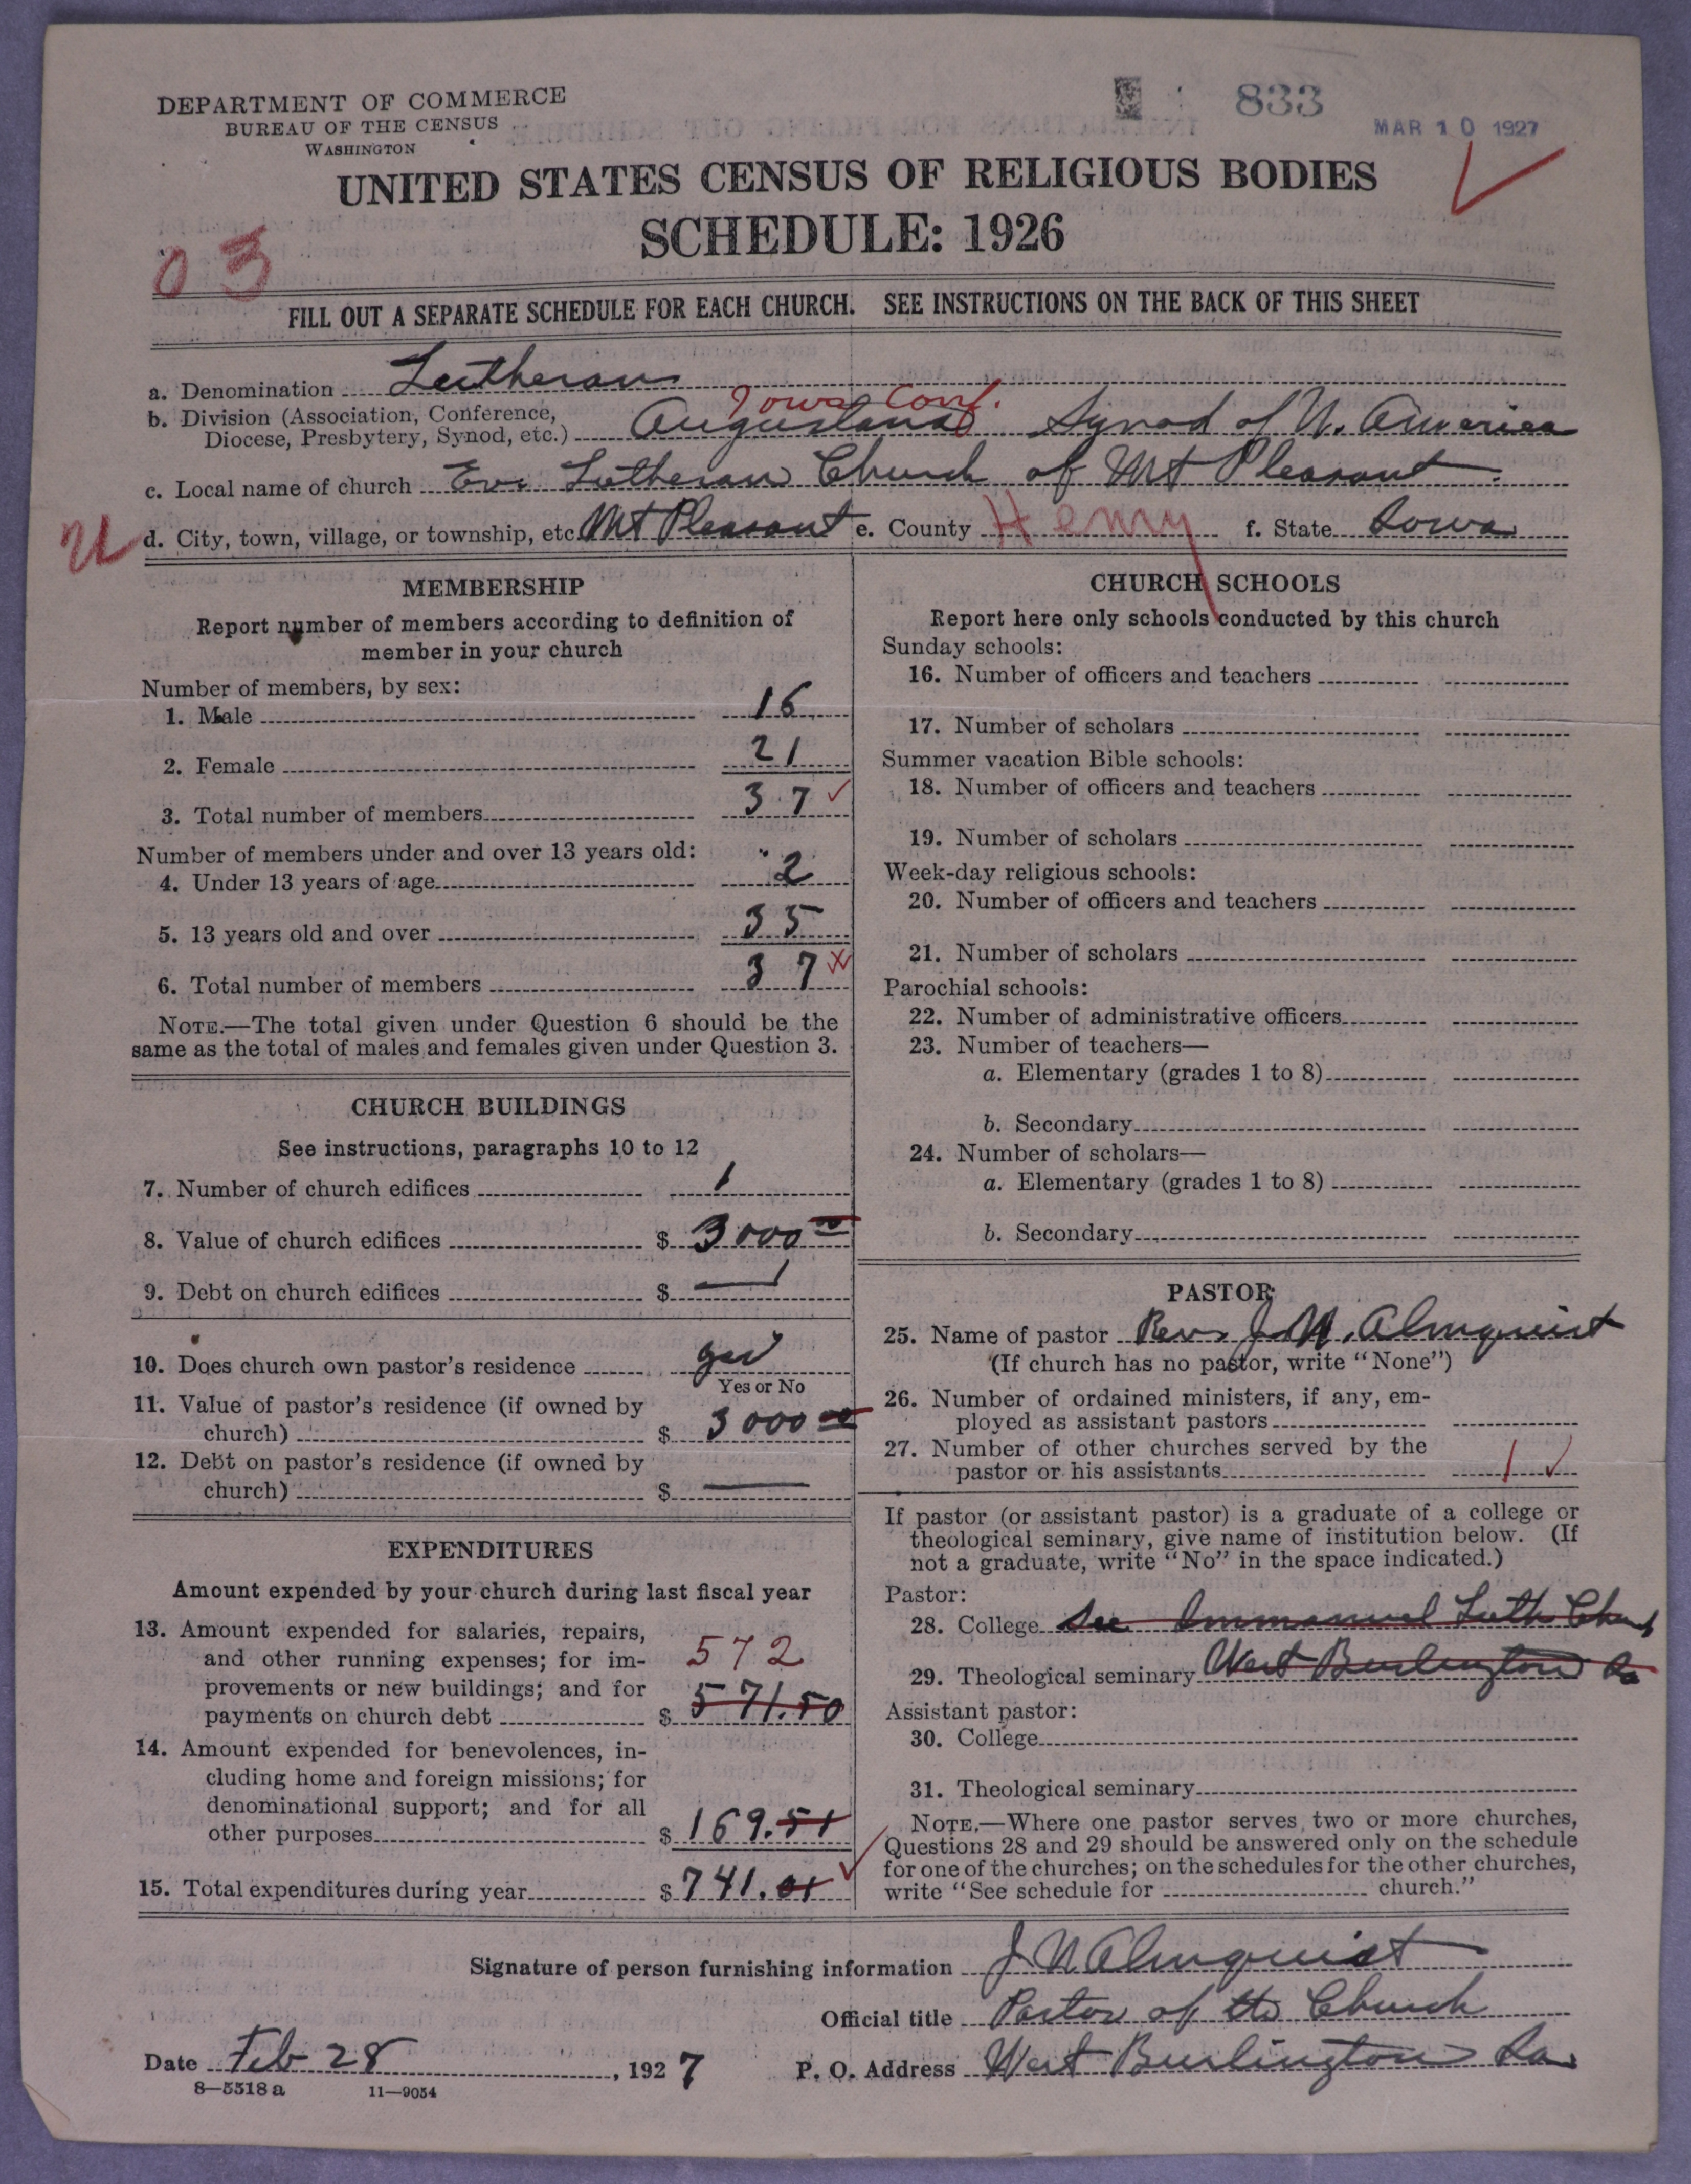 DEPARTMENT OF COMMERCE
BUREAU OF THE CENSUS
WASHINGTON
833
MAR 10 1927
UNITED STATES CENSUS OF RELIGIOUS BODIES
SCHEDULE: 1926
03
FILL OUT A SEPARATE SCHEDULE FOR EACH CHURCH. SEE INSTRUCTIONS ON THE BACK OF THIS SHEET
a. Denomination Lutheran
Iowa Conf.
b. Division (Association, Conference,
Diocese, Presbytery, Synod, etc.) Augustana Synod of N. America
c. Local name of church Ev. Lutheran Church of Mt Pleasant
U d. City, town, village, or township, etc. Mt Pleasant e. County Henry f. State Iowa
MEMBERSHIP
Report number of members according to definition of
member in your church
Number of members, by sex:
1. Male 16
2. Female 21
3. Total number of members 37
Number of members under and over 13 years old:
4. Under 13 years of age 2
5. 13 years old and over 35
6. Total number of members 37
NOTE.—The total given under Question 6 should be the
same as the total of males and females given under Question 3.
CHURCH BUILDINGS
See instructions, paragraphs 10 to 12
7. Number of church edifices 1
8. Value of church edifices $ 3000 00
9. Debt on church edifices $ —
10. Does church own pastor's residence yes
Yes or No
11. Value of pastor's residence (if owned by
church) $ 3000 00
12. Debt on pastor's residence (if owned by
church) $ —
EXPENDITURES
Amount expended by your church during last fiscal year
13. Amount expended for salaries, repairs,
and other running expenses; for im- 572
provements or new buildings; and for
payments on church debt $ 571.50
14. Amount expended for benevolences, in-
cluding home and foreign missions; for
denominational support; and for all
other purposes $ 169.51
15. Total expenditures during year $ 741.01
CHURCH SCHOOLS
Report here only schools conducted by this church
Sunday schools:
16. Number of officers and teachers
17. Number of scholars
Summer vacation Bible schools:
18. Number of officers and teachers
19. Number of scholars
Week-day religious schools:
20. Number of officers and teachers
21. Number of scholars
Parochial schools:
22. Number of administrative officers
23. Number of teachers—
a. Elementary (grades 1 to 8)
b. Secondary
24. Number of scholars—
a. Elementary (grades 1 to 8)
b. Secondary
PASTOR
25. Name of pastor Rev. J. N. Almquist
(If church has no pastor, write "None")
26. Number of ordained ministers, if any, em-
ployed as assistant pastors
27. Number of other churches served by the
pastor or his assistants 1
If pastor (or assistant pastor) is a graduate of a college or
theological seminary, give name of institution below. (If
not a graduate, write "No" in the space indicated.)
Pastor:
28. College See Immanuel Luth. Church
29. Theological seminary West Burlington Ia
Assistant pastor:
30. College
31. Theological seminary
NOTE.—Where one pastor serves two or more churches,
Questions 28 and 29 should be answered only on the schedule
for one of the churches; on the schedules for the other churches,
write "See schedule for church."
Signature of person furnishing information J N Almquist
Official title Pastor of the Church
Date Feb 28, 1927 P. O. Address West Burlington Ia.
8—5518 a 11—9054